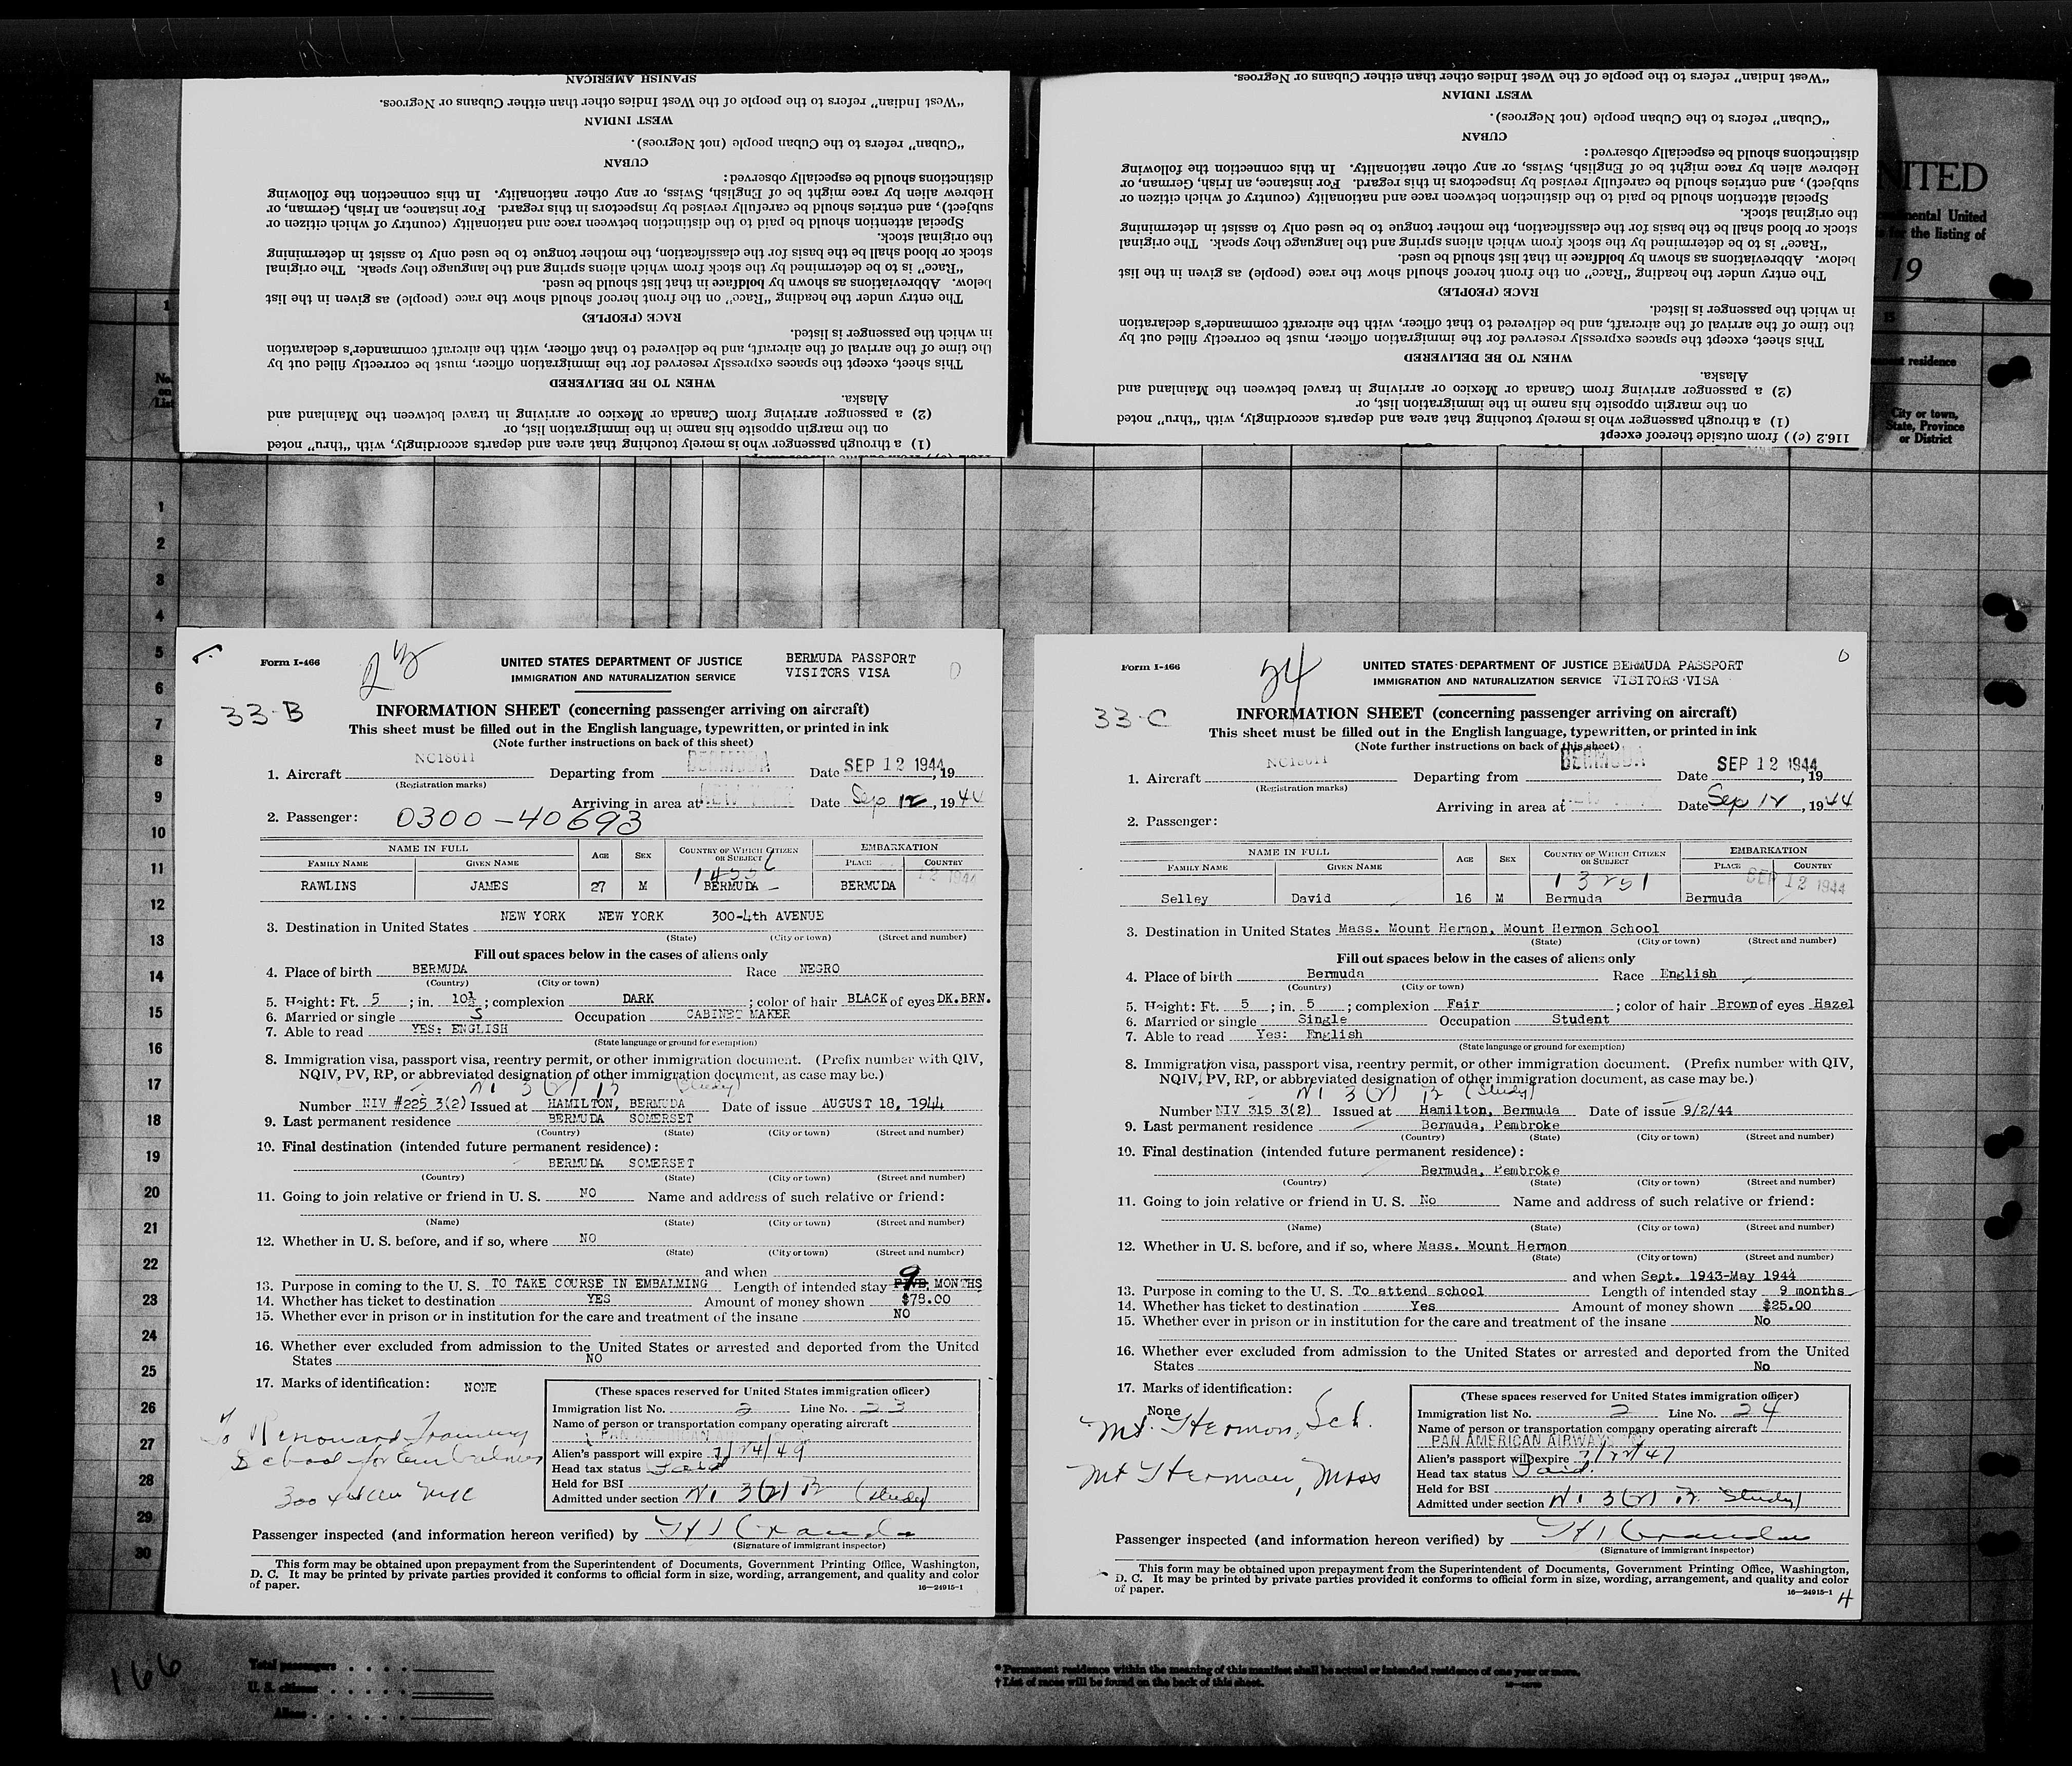 SPANISH AMERICAN
"West Indian" refers to the people of the West Indies other than either Cubans or Negroes.
WEST INDIAN
"Cuban" refers to the Cuban people (not Negroes).
CUBAN
distinctions should be especially observed:
Hebrew alien by race might be of English, Swiss, or any other nationality. In this connection the following
subject), and entries should be carefully revised by inspectors in this regard. For instance, an Irish, German, or
Special attention should be paid to the distinction between race and nationality (country of which citizen or
the original stock.
stock or blood shall be the basis for the classification, the mother tongue to be used only to assist in determining
"Race" is to be determined by the stock from which aliens spring and the language they speak. The original
below. Abbreviations as shown by boldface in that list should be used.
The entry under the heading "Race" on the front hereof should show the race (people) as given in the list
RACE (PEOPLE)
in which the passenger is listed.
the time of the arrival of the aircraft, and be delivered to that officer, with the aircraft commander's declaration
This sheet, except the spaces expressly reserved for the immigration officer, must be correctly filled out by
WHEN TO BE DELIVERED
Alaska.
(2) a passenger arriving from Canada or Mexico or arriving in travel between the Mainland and
on the margin opposite his name in the immigration list, or
(1) a through passenger who is merely touching that area and departs accordingly, with "thru" noted
"West Indian" refers to the people of the West Indies other than either Cubans or Negroes.
WEST INDIAN
"Cuban" refers to the Cuban people (not Negroes).
CUBAN
distinctions should be especially observed:
Hebrew alien by race might be of English, Swiss, or any other nationality. In this connection the following
subject), and entries should be carefully revised by inspectors in this regard. For instance, an Irish, German, or
Special attention should be paid to the distinction between race and nationality (country of which citizen or
the original stock.
stock or blood shall be the basis for the classification, the mother tongue to be used only to assist in determining
"Race" is to be determined by the stock from which aliens spring and the language they speak. The original
below. Abbreviations as shown by boldface in that list should be used.
The entry under the heading "Race" on the front hereof should show the race (people) as given in the list
RACE (PEOPLE)
in which the passenger is listed.
the time of the arrival of the aircraft, and be delivered to that officer, with the aircraft commander's declaration
This sheet, except the spaces expressly reserved for the immigration officer, must be correctly filled out by
WHEN TO BE DELIVERED
Alaska.
(2) a passenger arriving from Canada or Mexico or arriving in travel between the Mainland and
on the margin opposite his name in the immigration list, or
(1) a through passenger who is merely touching that area and departs accordingly, with "thru" noted
116.2 (c)) from outside thereof except
NITED
United
for the listing of
19
residence
City or town,
State, Province
or District
No.
on
List
1
2
3
4
5
6
7
8
9
10
11
12
13
14
15
16
17
18
19
20
21
22
23
24
25
26
27
28
29
30
Form I-466
23
UNITED STATES DEPARTMENT OF JUSTICE
IMMIGRATION AND NATURALIZATION SERVICE
BERMUDA PASSPORT
VISITORS VISA
0
33-B
INFORMATION SHEET (concerning passenger arriving on aircraft)
This sheet must be filled out in the English language, typewritten, or printed in ink
(Note further instructions on back of this sheet)
1. Aircraft NC18611 Departing from BERMUDA Date SEP 12 1944, 19
(Registration marks)
Arriving in area at NEW YORK Date Sep 12, 1944
2. Passenger: 0300-40693
NAME IN FULL AGE SEX COUNTRY OF WHICH CITIZEN OR SUBJECT EMBARKATION
FAMILY NAME GIVEN NAME PLACE COUNTRY
12 1944
RAWLINS JAMES 27 M BERMUDA BERMUDA
3. Destination in United States NEW YORK NEW YORK 300-4th AVENUE
(State) (City or town) (Street and number)
Fill out spaces below in the cases of aliens only
4. Place of birth BERMUDA Race NEGRO
(Country) (City or town)
5. Height: Ft. 5 ; in. 10½ ; complexion DARK ; color of hair BLACK of eyes DK.BRN.
6. Married or single S Occupation CABINET MAKER
7. Able to read YES: ENGLISH
(State language or ground for exemption)
8. Immigration visa, passport visa, reentry permit, or other immigration document. (Prefix number with QIV,
NQIV, PV, RP, or abbreviated designation of other immigration document, as case may be.)
(study)
Number NIV #225 3(2) Issued at HAMILTON, BERMUDA Date of issue AUGUST 18, 1944
9. Last permanent residence BERMUDA SOMERSET
(Country) (State) (City or town) (Street and number)
10. Final destination (intended future permanent residence):
BERMUDA SOMERSET
(Country) (State) (City or town) (Street and number)
11. Going to join relative or friend in U. S. NO Name and address of such relative or friend:
(Name) (State) (City or town) (Street and number)
12. Whether in U. S. before, and if so, where NO
(State) (City or town) (Street and number)
and when
13. Purpose in coming to the U. S. TO TAKE COURSE IN EMBALMING Length of intended stay 9 MONTHS
14. Whether has ticket to destination YES Amount of money shown $78.00
15. Whether ever in prison or in institution for the care and treatment of the insane NO
16. Whether ever excluded from admission to the United States or arrested and deported from the United
States NO
17. Marks of identification: NONE
To Renouard Training
School for Embalmers
300 4th Ave NYC
(These spaces reserved for United States immigration officer)
Immigration list No. 2 Line No. 23
Name of person or transportation company operating aircraft
PAN AMERICAN AIRWAYS
Alien's passport will expire 7/24/49
Head tax status Paid
Held for BSI
Admitted under section N1 3(2) (study)
Passenger inspected (and information hereon verified) by
(Signature of immigrant inspector)
This form may be obtained upon prepayment from the Superintendent of Documents, Government Printing Office, Washington,
D. C. It may be printed by private parties provided it conforms to official form in size, wording, arrangement, and quality and color
of paper.
16—24915-1
Form I-466
24
UNITED STATES DEPARTMENT OF JUSTICE
IMMIGRATION AND NATURALIZATION SERVICE
BERMUDA PASSPORT
VISITORS VISA
0
33-C
INFORMATION SHEET (concerning passenger arriving on aircraft)
This sheet must be filled out in the English language, typewritten, or printed in ink
(Note further instructions on back of this sheet)
1. Aircraft NC18611 Departing from BERMUDA Date SEP 12 1944, 19
(Registration marks)
Arriving in area at Date Sep 12, 1944
2. Passenger:
NAME IN FULL AGE SEX COUNTRY OF WHICH CITIZEN OR SUBJECT EMBARKATION
FAMILY NAME GIVEN NAME PLACE COUNTRY
13251 SEP 12 1944
Selley David 16 M Bermuda Bermuda
3. Destination in United States Mass. Mount Hermon, Mount Hermon School
(State) (City or town) (Street and number)
Fill out spaces below in the cases of aliens only
4. Place of birth Bermuda Race English
(Country) (City or town)
5. Height: Ft. 5 ; in. 5 ; complexion Fair ; color of hair Brown of eyes Hazel
6. Married or single Single Occupation Student
7. Able to read Yes: English
(State language or ground for exemption)
8. Immigration visa, passport visa, reentry permit, or other immigration document. (Prefix number with QIV,
NQIV, PV, RP, or abbreviated designation of other immigration document, as case may be.)
N1 3(2) (Study)
Number NIV 315 3(2) Issued at Hamilton, Bermuda Date of issue 9/2/44
9. Last permanent residence Bermuda, Pembroke
(Country) (State) (City or town) (Street and number)
10. Final destination (intended future permanent residence):
Bermuda, Pembroke
(Country) (State) (City or town) (Street and number)
11. Going to join relative or friend in U. S. No Name and address of such relative or friend:
(Name) (State) (City or town) (Street and number)
12. Whether in U. S. before, and if so, where Mass. Mount Hermon
(State) (City or town) (Street and number)
and when Sept. 1943-May 1944
13. Purpose in coming to the U. S. To attend school Length of intended stay 9 months
14. Whether has ticket to destination Yes Amount of money shown $25.00
15. Whether ever in prison or in institution for the care and treatment of the insane No
16. Whether ever excluded from admission to the United States or arrested and deported from the United
States No
17. Marks of identification:
None
Mt. Hermon, Sch.
Mt Hermon, Mass
(These spaces reserved for United States immigration officer)
Immigration list No. 2 Line No. 24
Name of person or transportation company operating aircraft
PAN AMERICAN AIRWAYS
Alien's passport will expire 7/22/47
Head tax status Paid.
Held for BSI
Admitted under section N1 3(2) Study)
Passenger inspected (and information hereon verified) by
(Signature of immigrant inspector)
This form may be obtained upon prepayment from the Superintendent of Documents, Government Printing Office, Washington,
D. C. It may be printed by private parties provided it conforms to official form in size, wording, arrangement, and quality and color
of paper.
16—24915-1
4
166
Total passengers
U. S. citizens
Aliens
* Permanent residence within the meaning of this manifest shall be actual or intended residence of one year or more.
† List of races will be found on the back of this sheet.